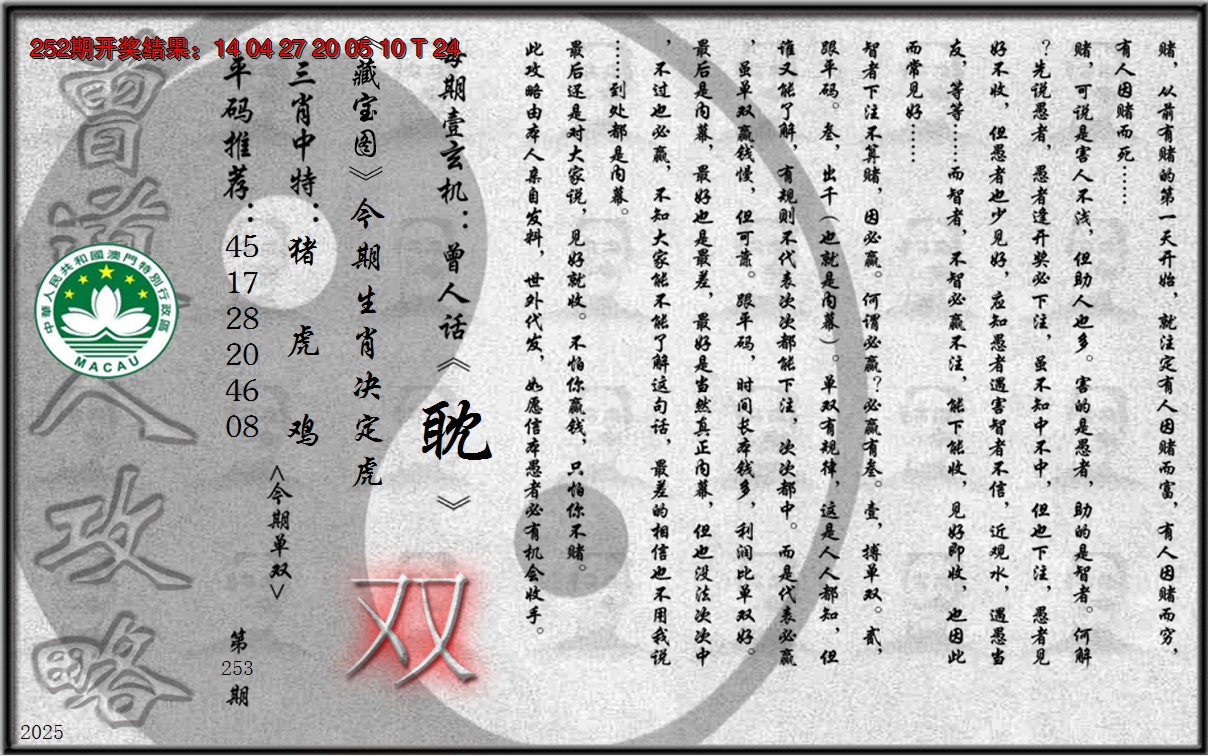 252期开奖结果：14 04 27 20 05 10 T 24
赌，从前有赌的第一天开始，就注定有人因赌而富，有人因赌而穷，
有人因赌而死……
赌，可说是害人不浅，但助人也多。害的是愚者，助的是智者。何解
？先说愚者，愚者逢开奖必下注，虽不知中不中，但也下注，愚者见
好不收，但愚者也少见好，应知愚者遇害智者不信，近观水，遇愚当
友，等等……而智者，不智必赢不注，能下能收，见好即收，也因此
而常见好……
智者下注不算赌，因必赢。何谓必赢？必赢有叁。壹，搏单双。贰，
跟平码。叁，出千（也就是内幕）。单双有规律，这是人人都知，但
谁又能了解，有规则不代表次次都能下注，次次都中。而是代表必赢
，虽单双赢钱慢，但可靠。跟平码，时间长本钱多，利润比单双好。
最后是内幕，最好也是最差，最好是当然真正内幕，但也没法次次中
，不过也必赢，不知大家能不能了解这句话，最差的相信也不用我说
……到处都是内幕。
最后还是对大家说，见好就收。不怕你赢钱，只怕你不赌。
此攻略由本人亲自发料，世外代发，如愿信本愚者必有机会收手。
每期壹玄机：曾人话《耽》
《藏宝图》今期生肖决定虎
双
三肖中特：猪 虎 鸡
<今期单双>
平码推荐：
45
17
28
20
46
08
第
253
期
曾道人攻略
中華人民共和國澳門特別行政區
MACAU
2025